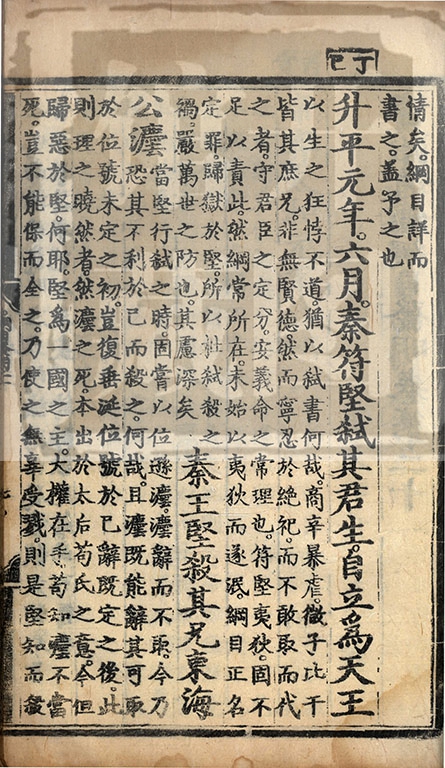 丁巳
情矣。綱目詳而
書之。蓋予之也
升平元年。六月。秦符堅弑其君生。自立爲天王
以生之狂悖不道。猶以弑書何哉。商辛暴虐。微子比干
皆其庶兄。非無賢德。然而寧忍於絶祀。而不敢取而代
之者。守君臣之定分。安義命之常理也。符堅夷狄。固不
足以責此。然綱常所在。未始以夷狄而遂泯。綱目正名
定罪。歸獄於堅。所以杜弑殺之
禍。嚴萬世之防也。其慮深矣
秦王堅殺其兄東海
公瀍
當堅行弑之時。固嘗以位遜瀍。瀍辭而不取。今乃
恐其不利於己而殺之。何哉。且瀍既能辭其可取
於位號未定之初。豈復垂涎位號於已辭既定之後。此
則理之曉然者。然瀍之死。本出於太后苟氏之意。今但
歸惡於堅。何耶。堅爲一國之主。大權在手。苟知瀍不當
死。豈不能保而全之。乃使之無辜受戮。則是堅知而